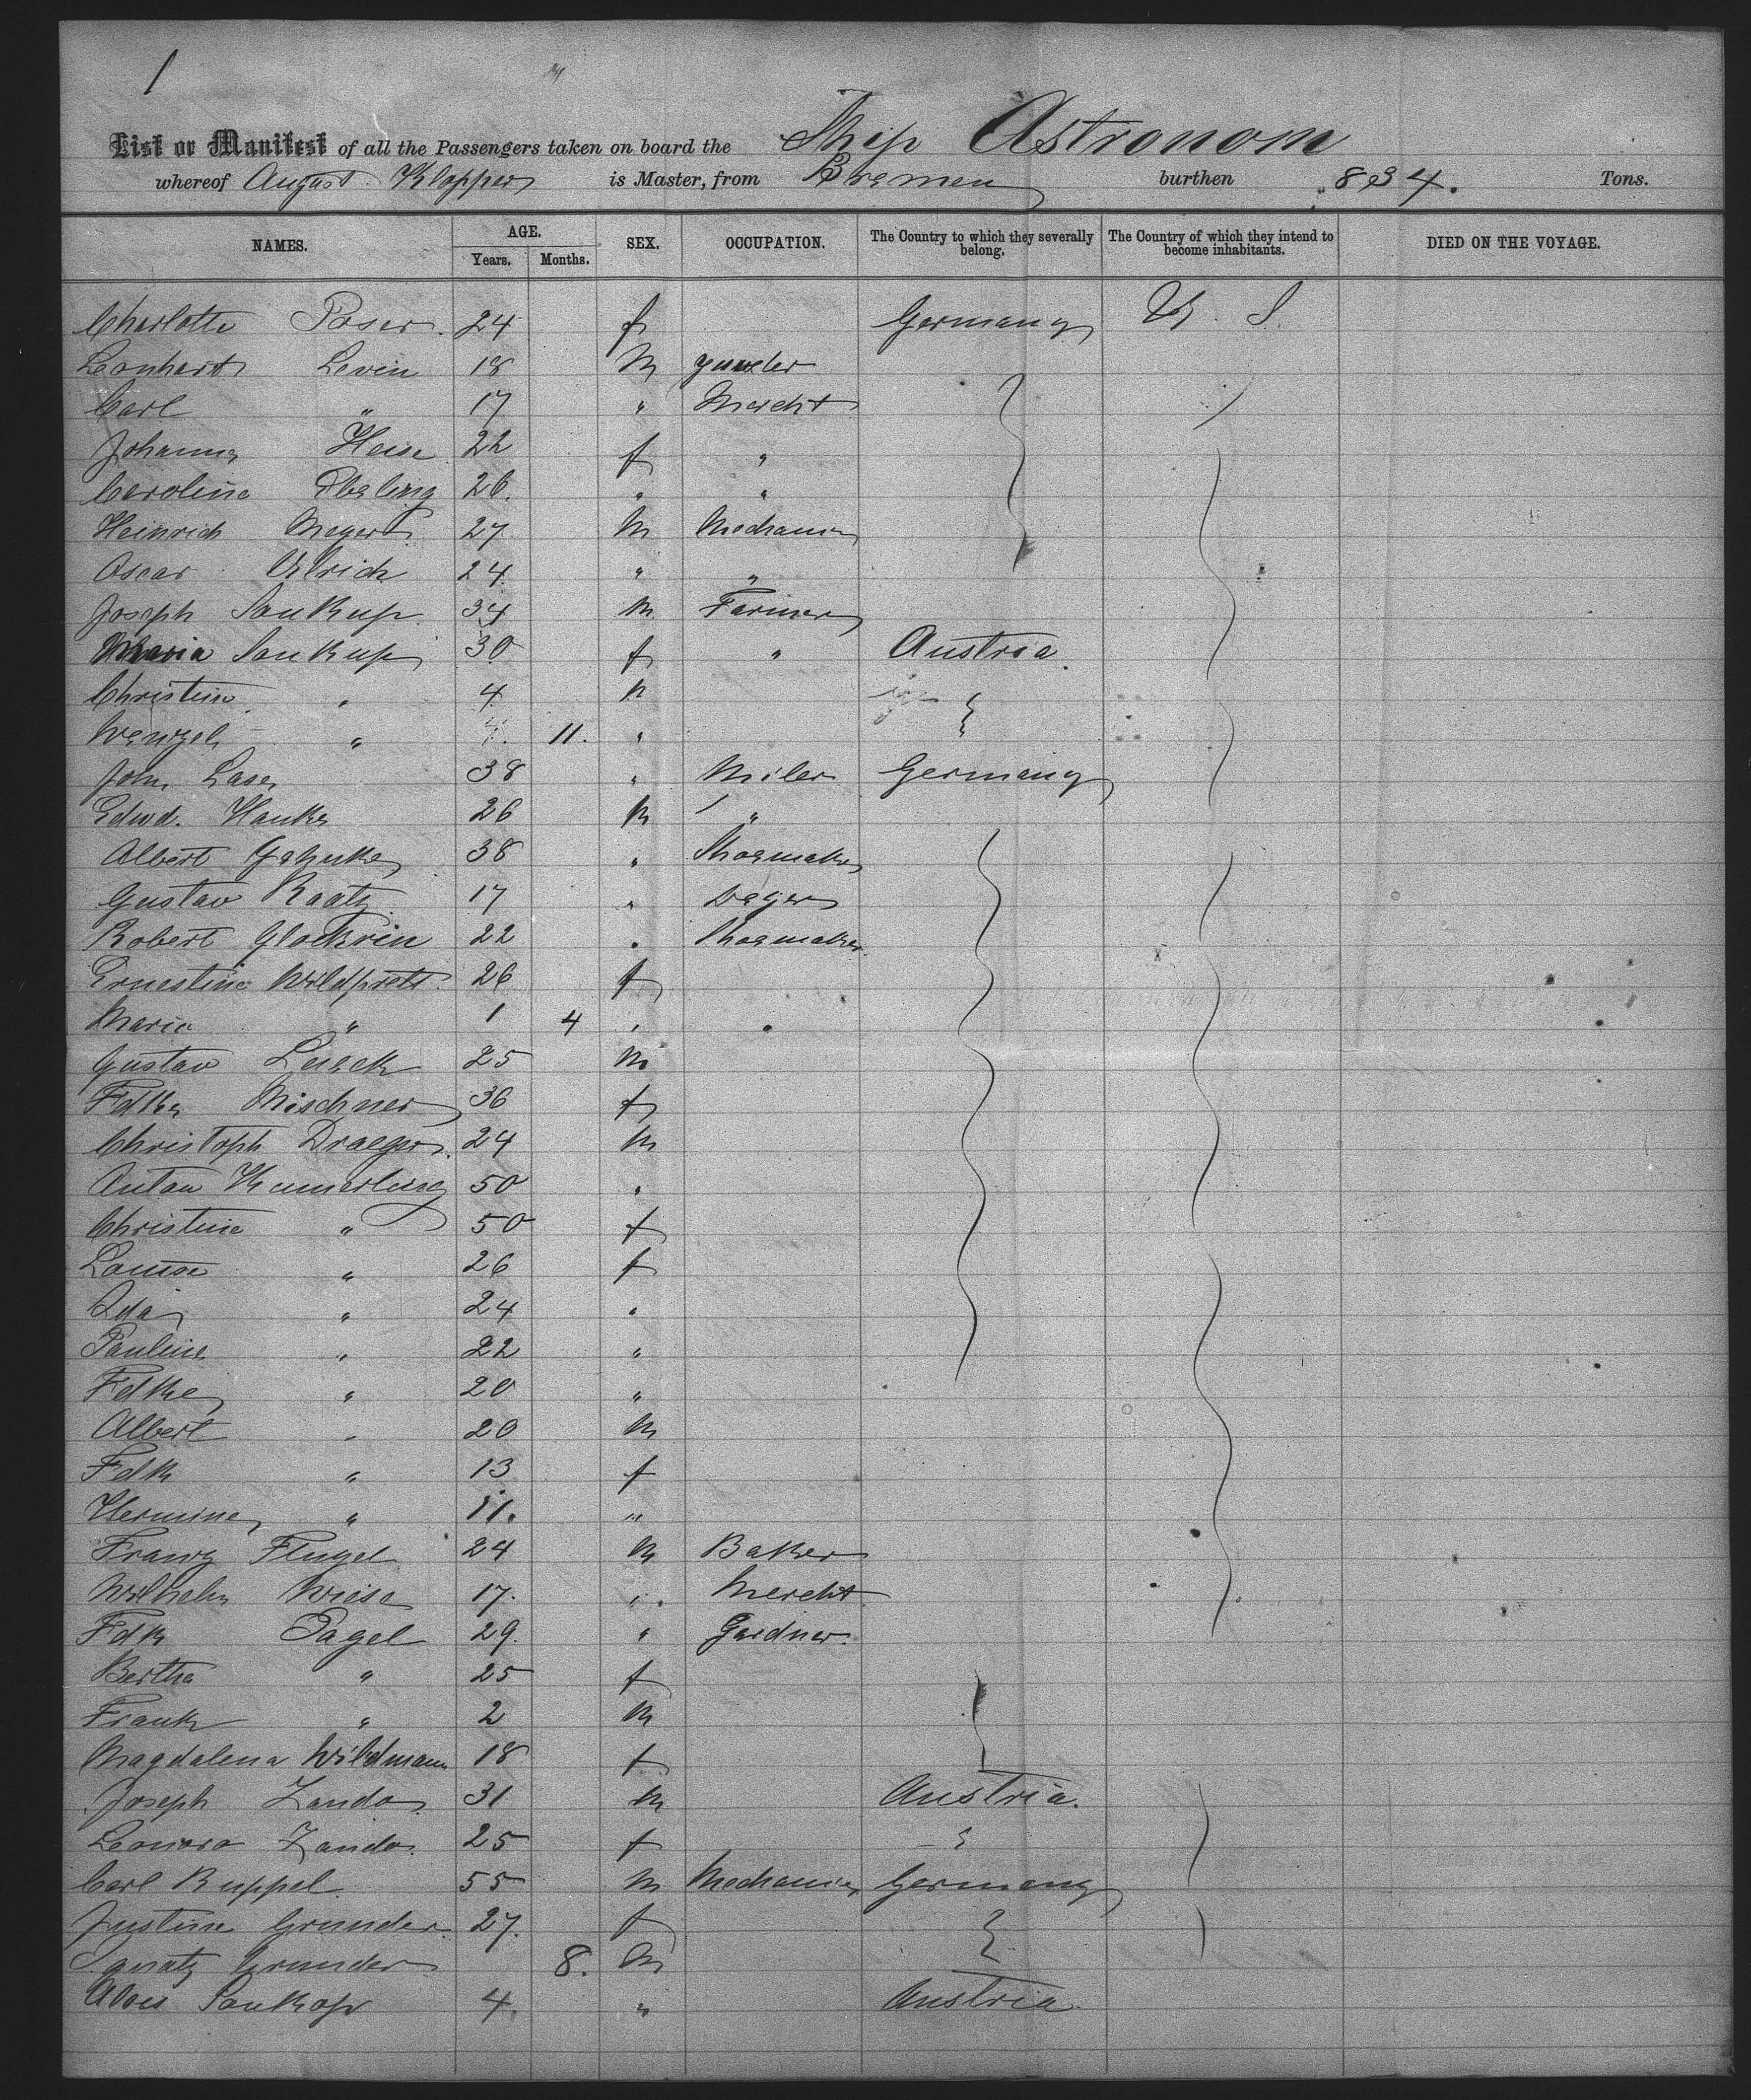 1
List or Manifest of all the Passengers taken on board the Ship Astronom
whereof August Klopper is Master, from Bremen burthen 834. Tons.
NAMES. AGE. Years. Months. SEX. OCCUPATION. The Country to which they severally belong. The Country of which they intend to become inhabitants. DIED ON THE VOYAGE.
Charlotte Poser 24 f Germany U. S.
Leonhart Levin 18 M yuweler
Carl " 17 " Mercht
Johanna Heise 22 f "
Caroline Ebeling 26. " "
Heinrich Meyer 27 M Mechanic
Oscar Ulrich 24 " "
Joseph Soukup 34 M Farmer
Maria Soukup 30 f " Austria.
Christine " 4 M
Wenzel " 11. "
John Laser 38 " Miler Germany
Edwd. Hanke 26 M "
Albert Gehnke 38 " Shoemaker
Gustav Raatz 17 "
Robert Glockrin 22 " Shoemaker
Ernestine Wildprett 26 f
Maria " 1 4 "
Gustav Lueck 25 M
Fdke Mischner 36 f
Christoph Draeger 24 M
Anton Kumerling 50 "
Christine " 50 f
Louise " 26 f
Ida " 24 "
Pauline " 22 "
Fdke " 20 "
Albert " 20 M
Fdk " 13 f
Hermine " 11. "
Franz Flugel 24 M Baker
Wilhelm Wiese 17. " Mercht
Fdk Pagel 29. " Gardner.
Bertha " 25 f
Frank " 2 M
Magdalena Wildmann 18 f
Joseph Zanda 31 M Austria.
Leonora Zanda 25 f "
Carl Ruppel 55 M Mechanic Germany
Justine Grunder 27. f
Ignatz Grunder 8. M
Alois Soukop 4. " Austria